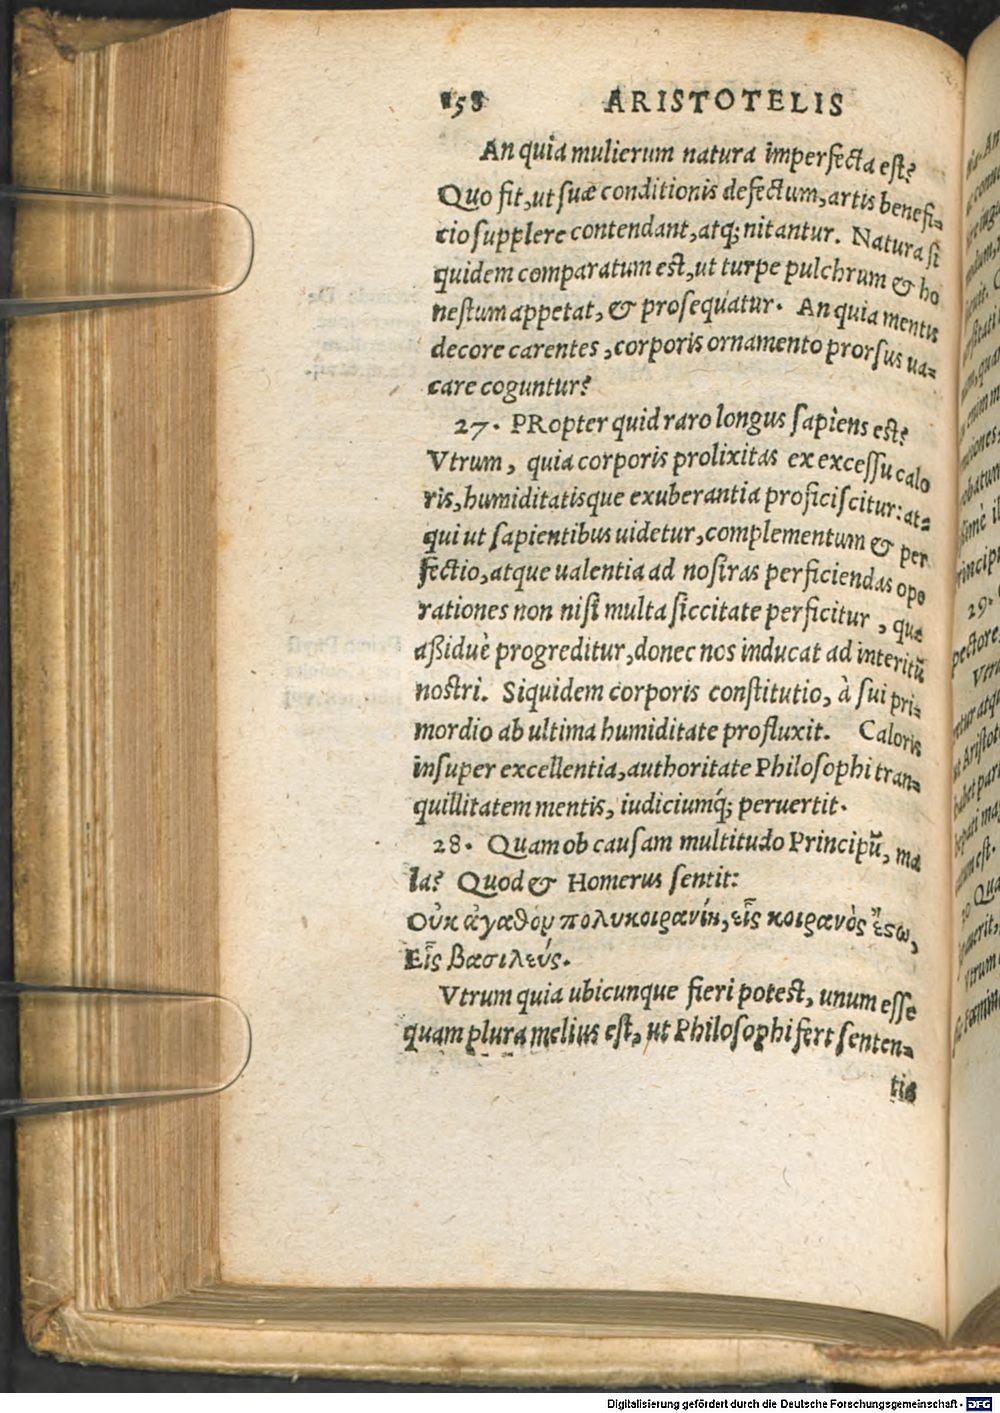 158 ARISTOTELIS
An quia mulierum natura imperfecta est?
Quo fit, ut suæ conditionis defectum, artis benefi-
cio supplere contendant, atq; nitantur. Natura si
quidem comparatum est, ut turpe pulchrum & ho
nestum appetat, & prosequatur. An quia mentis
decore carentes, corporis ornamento prorsus ua-
care coguntur?
27. PRopter quid raro longus sapiens est?
Vtrum, quia corporis prolixitas ex excessu calo
ris, humiditatisque exuberantia proficiscitur: at-
qui ut sapientibus uidetur, complementum & per
fectio, atque ualentia ad nostras perficiendas ope
rationes non nisi multa siccitate perficitur, quæ
aßiduè progreditur, donec nos inducat ad interitũ
nostri. Siquidem corporis constitutio, à sui pri-
mordio ab ultima humiditate profluxit. Caloris
insuper excellentia, authoritate Philosophi tran-
quillitatem mentis, iudiciumq́; peruertit.
28. Quam ob causam multitudo Principũ, ma
la? Quod & Homerus sentit:
Οὐκ ἀγαθὸν πολυκοιρανίη, εἷς κοιρανὸς ἔστω,
Εἷς βασιλεύς.
Vtrum quia ubicunque fieri potest, unum esse
quam plura melius est, ut Philosophi fert senten-
tia
Digitalisierung gefördert durch die Deutsche Forschungsgemeinschaft - DFG